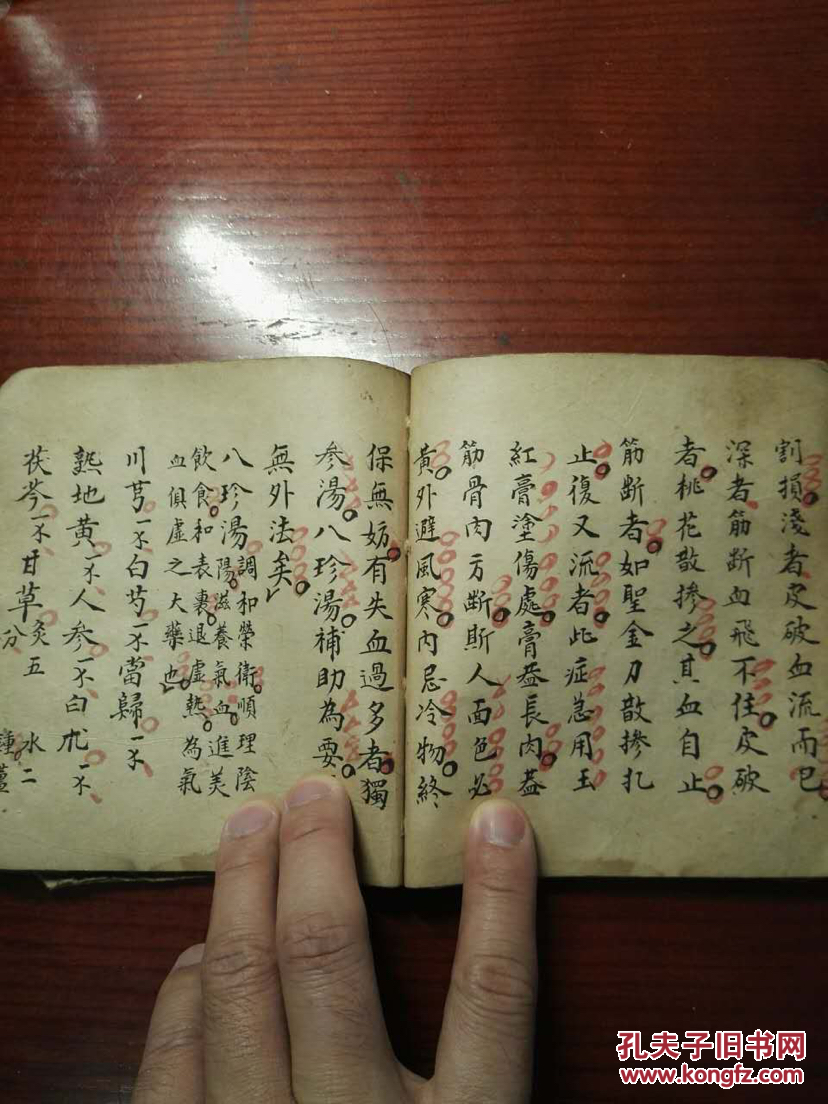 割損淺者皮破血流而已
深者筋斷血飛不住皮破
者桃花散摻之其血自止
筋斷者如聖金刀散摻扎
止復又流者此症急用玉
紅膏塗傷處膏益長肉益
筋骨肉方斷斯人面色必
黄外避風寒内忌冷物終
保無妨有失血過多者獨
參湯八珍湯補助為要
無外法矣
八珍湯調和榮衛順理陰
陽滋養氣血進美
飲食和表裏退虚熱為氣
血俱虚之大藥也
川芎一錢白芍一錢當歸一錢
熟地黄一錢人參一錢白朮一錢
茯苓一錢甘草炙五分
水二鍾薑
孔夫子旧书网
www.kongfz.com